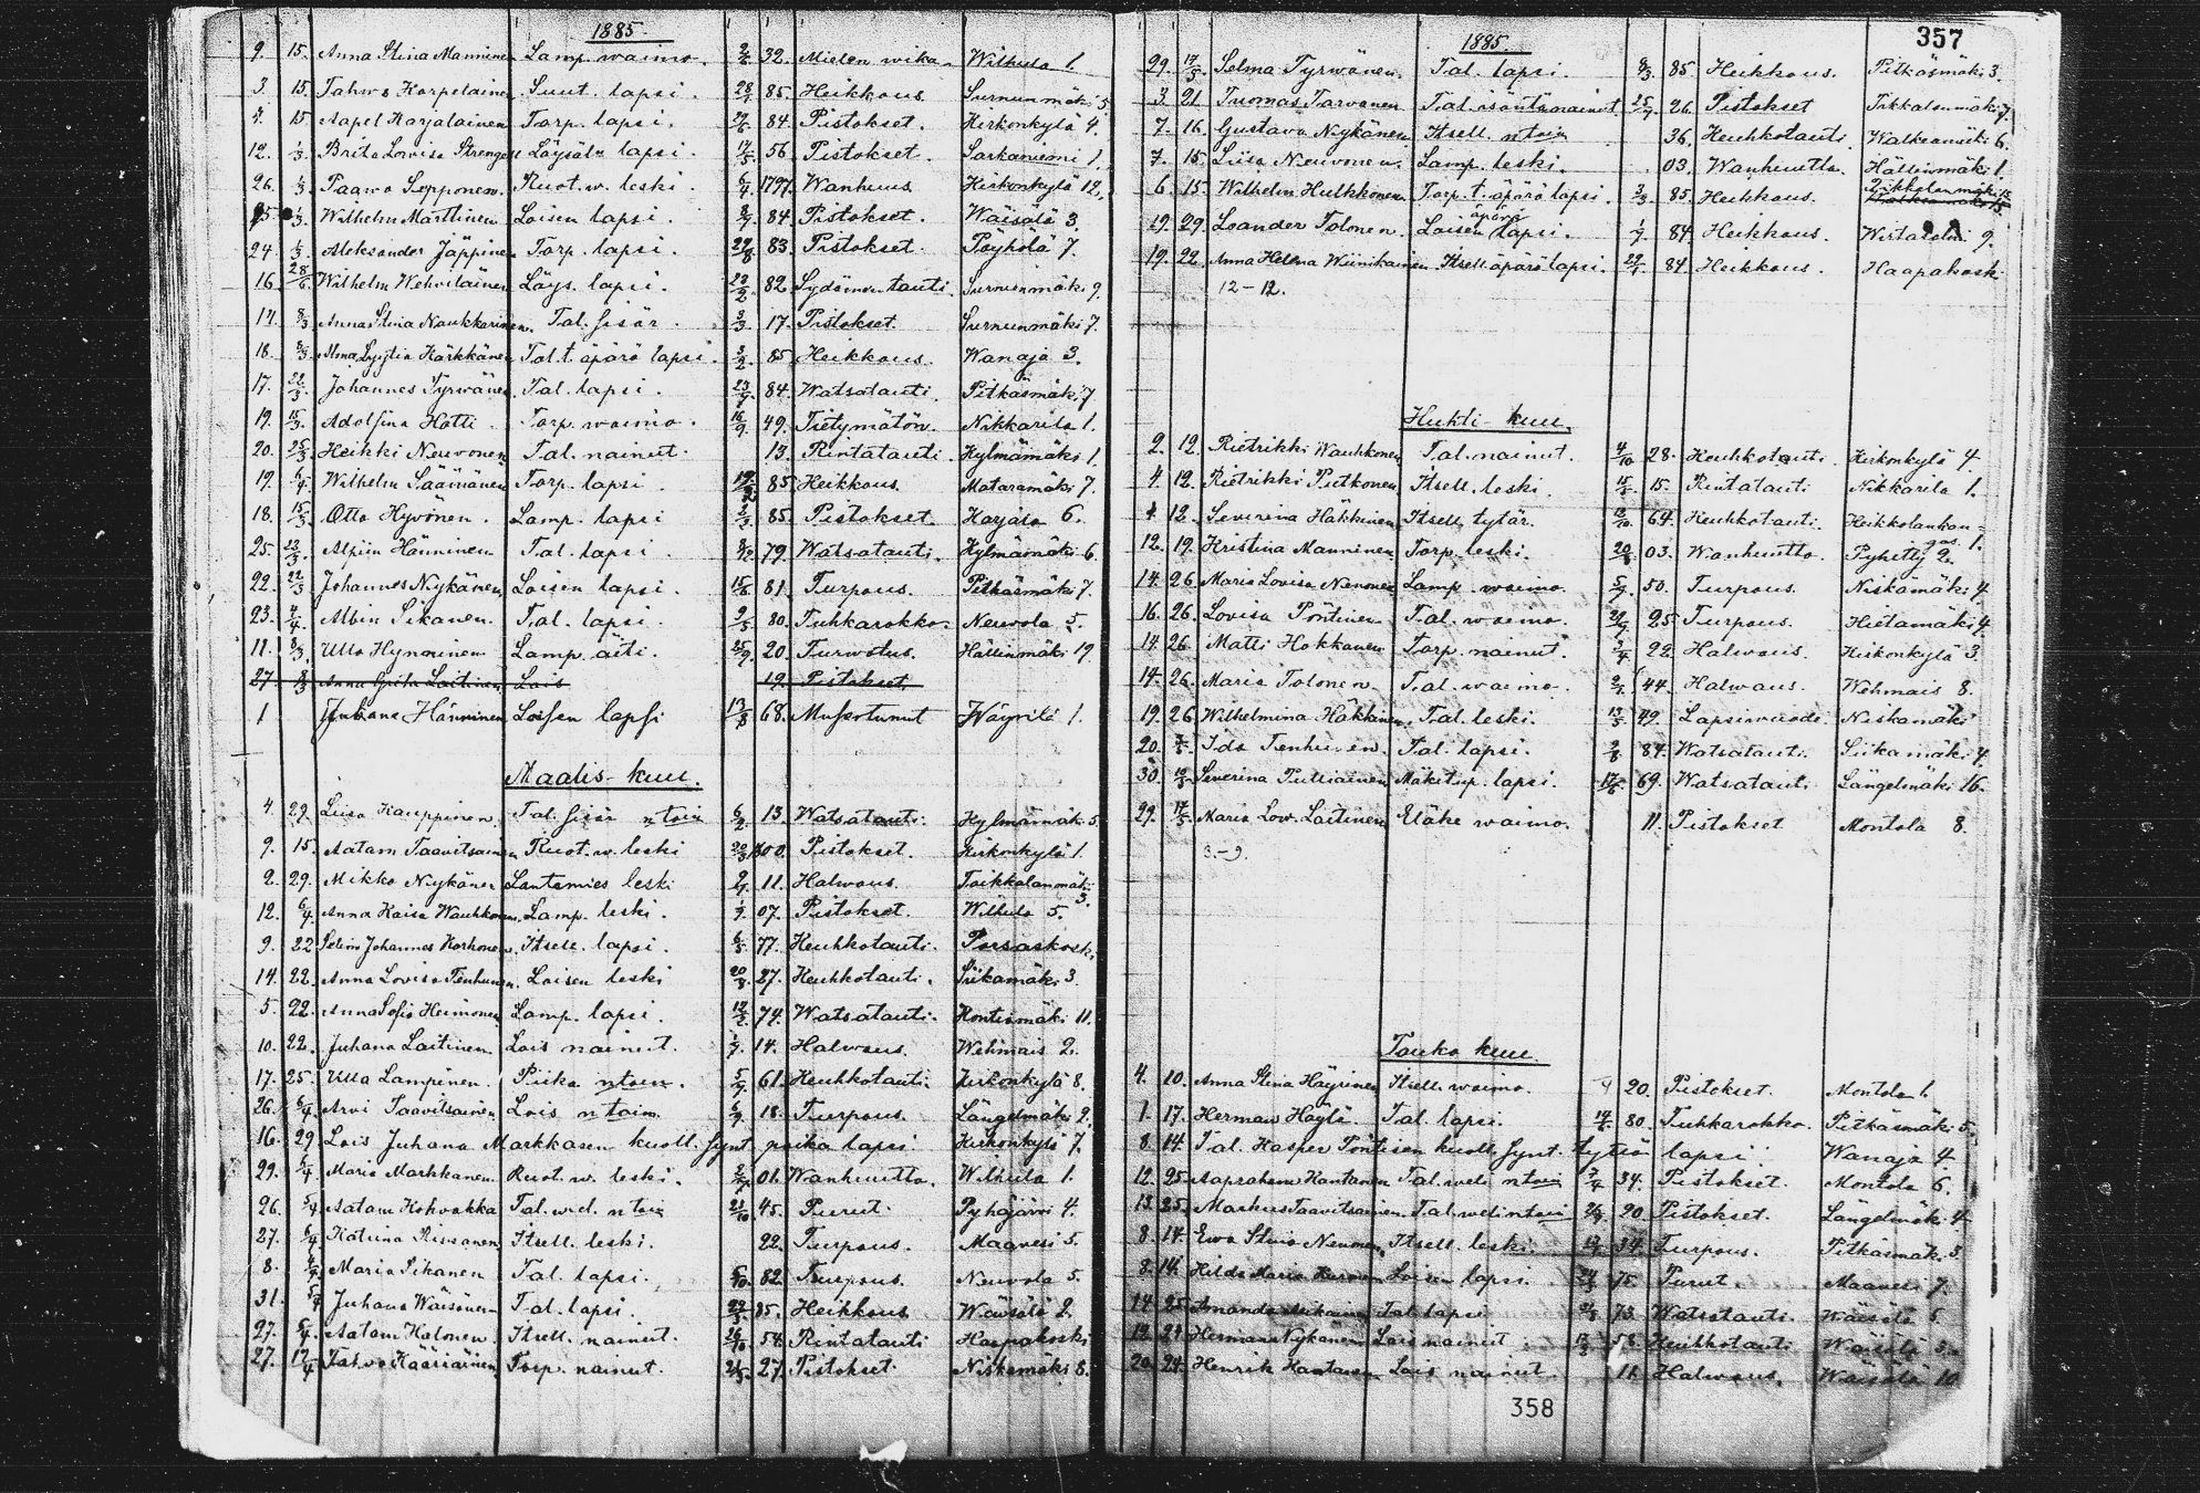 1885.
9. 15. Anna Stina Manninen Lamp. waimo. 2/6 32. Mielen wika Wilhula 1.
3. 15. Tahwo Karpelainen Suut. lapsi. 28/1 85. Heikkous. Surnunmäki 5
15 Aapel Karjalainen Torp. lapsi. 84. Pistokset. Kirkonkylä 4.
12. 1/3 Brita Lovisa Strengell Löysäln lapsi. 17/5 56 Pistokset. Sarkaniemi 1.
26. 1/3 Paawo Sepponen. Ruot. w. leski. 6/4 1797. Wanhuus Kirkonkylä 12.
25. 1/3 Wilhelm Märttinen Loisen lapsi. 84. Pistokset. Wäisälä 3.
24. 1/3 Aleksander Jäppinen Torp. lapsi. 29/8 83. Pistokset. Pöyhölä 7.
16. Wilhelm Wehviläinen Löys. lapsi. 23/2 82 Sydämen tauti. Surnunmäki 9.
17. 8/3 Anna Stina Naukkarinen. Tal. sisär. 3/3 17. Pistokset. Surnunmäki 7.
18. 8/3 Alma Lyytia Kärkkänen Tal. t. äpärä lapsi. 3/2 85. Heikkous. Wanaja 3.
17. 22/3 Johannes Tyrwänen Tal. lapsi. 84. Watsatauti. Pitkäsmäki 7
19. 15/3 Adolfina Hotti. Torp. waimo. 16/9 49. Tietymätön. Nikkarila 1.
20. 25/3 Heikki Neuvonen Tal. nainut. 13. Rintatauti. Kylmämäki 1.
19. 6/4 Wilhelm Säämänen Torp. lapsi. 85 Heikkous. Mataramäki 7.
18. 15/3 Otto Hyvönen. Lamp. lapsi 85. Pistokset. Harjula 6.
25. 22/3 Alpiin Hänninen Tal. lapsi. 8/12 79 Watsatauti. Kylmämäki 6.
22. 22/3 Johannes Nykänen Loisen lapsi. 15/6 81. Turpous. Pitkäsmäki 7.
23. 4/4 Albin Sikanen. Tal. lapsi. 9/5 80. Tuhkarokko. Neuvola 5.
11. 8/3 Ulla Hynninen Lamp. äiti. 25/9 20. Turwotus. Hällinmäki 19.
27. 8/3 Anna Grita Laitinen Lois 19. Pistokset.
1 Juhana Hänninen Loisen lapsi 13/8 68. Muserlunut Häyrilä 1.
Maalis-kuu.
4. 29. Liisa Kauppinen. Tal. sisär ntoin 6/2 13. Watsatauti. Kylmämäki 5.
9. 15. Aatam Taavitsainen Ruot. w. leski 20/3 1800. Pistokset. Kirkonkylä 1.
2. 29. Mikko Nykänen Lautamies leski 11. Halwaus. Toikkalanmäki 3.
12. 6/4 Anna Kaisa Wauhkonen Lamp. leski. 07. Pistokset. Wilhula 5.
9. 22 Selim Johannes Korhonen. Itsell. lapsi. 6/5 77. Keuhkotauti. Porsaskoski
14. 22. Anna Lovisa Tenhunen. Loisen leski 20/8 27. Keuhkotauti. Siikamäki 3.
5. 22. Anna Sofia Heimonen Lamp. lapsi. 74. Watsatauti. Kontiomäki 11.
10. 22. Juhana Laitinen. Lois nainut. 14. Halwaus. Wehmais 2.
17. 25. Ulla Lampinen. Piika ntoin. 5/9 61. Keuhkotauti. Kirkonkylä 8.
26. 6/4 Arvi Taavitsainen. Lois ntoin. 18. Turpous. Längelmäki 2.
16. 29 Lois Juhana Markkasen kuoll. synt poika lapsi. Kirkonkylä 7.
29. 5/4 Maria Markkanen. Ruot. w. leski. 01. Wanhuutta. Wilhula 1.
26. 5/4 Aatam Kohvakka Tal. wel. ntoin 21/10 45. Purut. Pyhäjärvi 4.
27. 6/4 Katrina Rissanen Itsell. leski. 22. Turpous. Maavesi 5.
8. Maria Sikanen Tal. lapsi. 6/10 82. Turpous. Neuvola 5.
31. 5/4 Juhana Wäisänen Tal. lapsi. 85. Heikkous. Wäisälä 2.
27. 5/4 Aatam Halonen. Itsell. nainut. 26/10 54. Rintatauti Haapakoski
27. 12/4 Tahvo Kääriäinen Torp. nainut. 27. Pistokset Niskamäki 8.
357
1885.
29. 17/5 Selma Tyrwänen. Tal. lapsi. 8/3 85 Heikkous. Pitkäsmäki 3.
3. 21 Tuomas Tarvanen Tal. isäntä nainut 25/9 26. Pistokset Tikkalanmäki 7.
7. 16. Gustava Nykänen Itsell. ntoin 36. Keuhkotauti. Walkeamäki 6.
7. 15. Liisa Neuvonen. Lamp. leski. 03. Wanhuutta. Hällinmäki 1.
6. 15. Wilhelm Hulkkonen Torp. t. äpärä lapsi. 3/3 85. Heikkous.
19. 29. Leander Tolonen. Loisen äpärä lapsi. 84. Heikkous. 9.
19. 22. Anna Helena Wiinikainen Itsell. äpärä lapsi. 84. Heikkous. Haapakoski
12-12.
Huhti-kuu.
2. 12. Rietrikki Wauhkonen Tal. nainut. 4/10 28. Keuhkotauti. Kirkonkylä 4.
4. 12. Rietrikki Putkonen Itsell. leski. 15. Rintatauti Nikkarila 1.
4. 12. Severina Häkkinen Itsell. tytär. 64. Keuhkotauti. Heikkolankan=
gas 1.
12. 19. Kristina Manninen Torp. leski. 03. Wanhuutta. Pyhitty 2.
14. 26 Maria Lovisa Nenonen Lamp. waimo. 5/9 50. Turpous. Niskamäki 4
16. 26. Lovisa Pöntinen Tal. waimo. 25 Turpous. Hietamäki 4.
14. 26. Matti Hokkanen Torp. nainut. 22. Halwaus. Kirkonkylä 3.
14. 26. Maria Tolonen. Tal. waimo. 44. Halwaus. Wehmais 8.
19. 26 Wilhelmina Häkkinen. Tal. leski. 13/5 49. Lapsiwuode. Niskamäki
20. Ida Tenhunen. Tal. lapsi. 84. Watsatauti. Siikamäki 4.
30. Severina Pulliainen Mäkitup. lapsi. 69. Watsatauti Längelmäki 16.
29. 17/5 Maria Low. Laitinen Eläke waimo. 11. Pistokset Montola 8.
3.-9.
Touko kuu.
4. 10. Anna Stina Häyrinen Itsell. waimo. 20. Pistokset. Montola 1.
1. 17. Herman Häylä. Tal. lapsi. 80. Tuhkarokko. Pitkäsmäki 5.
8. 14. Tal. Kasper Pöntisen kuoll. synt. tyttö lapsi. Wanaja 4.
12. 25. Aapraham Kantanen Tal. weli ntoin 34. Pistokset. Montola 6.
13. 25. Markus Taavitsainen. Tal. weli ntoin 20. Pistokset. Längelmäki 4
8. 14. Ewa Stiina Nenonen Itsell. leski. 34. Turpous. Pitkäsmäki 3.
8. 14. Hilda Maria Loisen lapsi. 75. Purut. Maavesi 7.
14. 25. Amanda Tal. lapsi 73. Watsatauti. Wäisälä 5.
12. 24. Herman Nykänen Lois nainut 58. Keuhkotauti Wäisälä 5.
20. 24. Henrik Hantanen Lois nainut. 11. Halwaus. Wäisälä 10
358